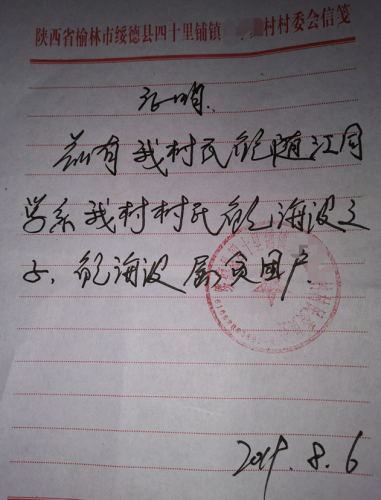 陕西省榆林市绥德县四十里铺镇 村村委会信笺
证明
兹有我村民 随江同
学系我村村民 海波之
子、 海波属贫困户
2019.8.6